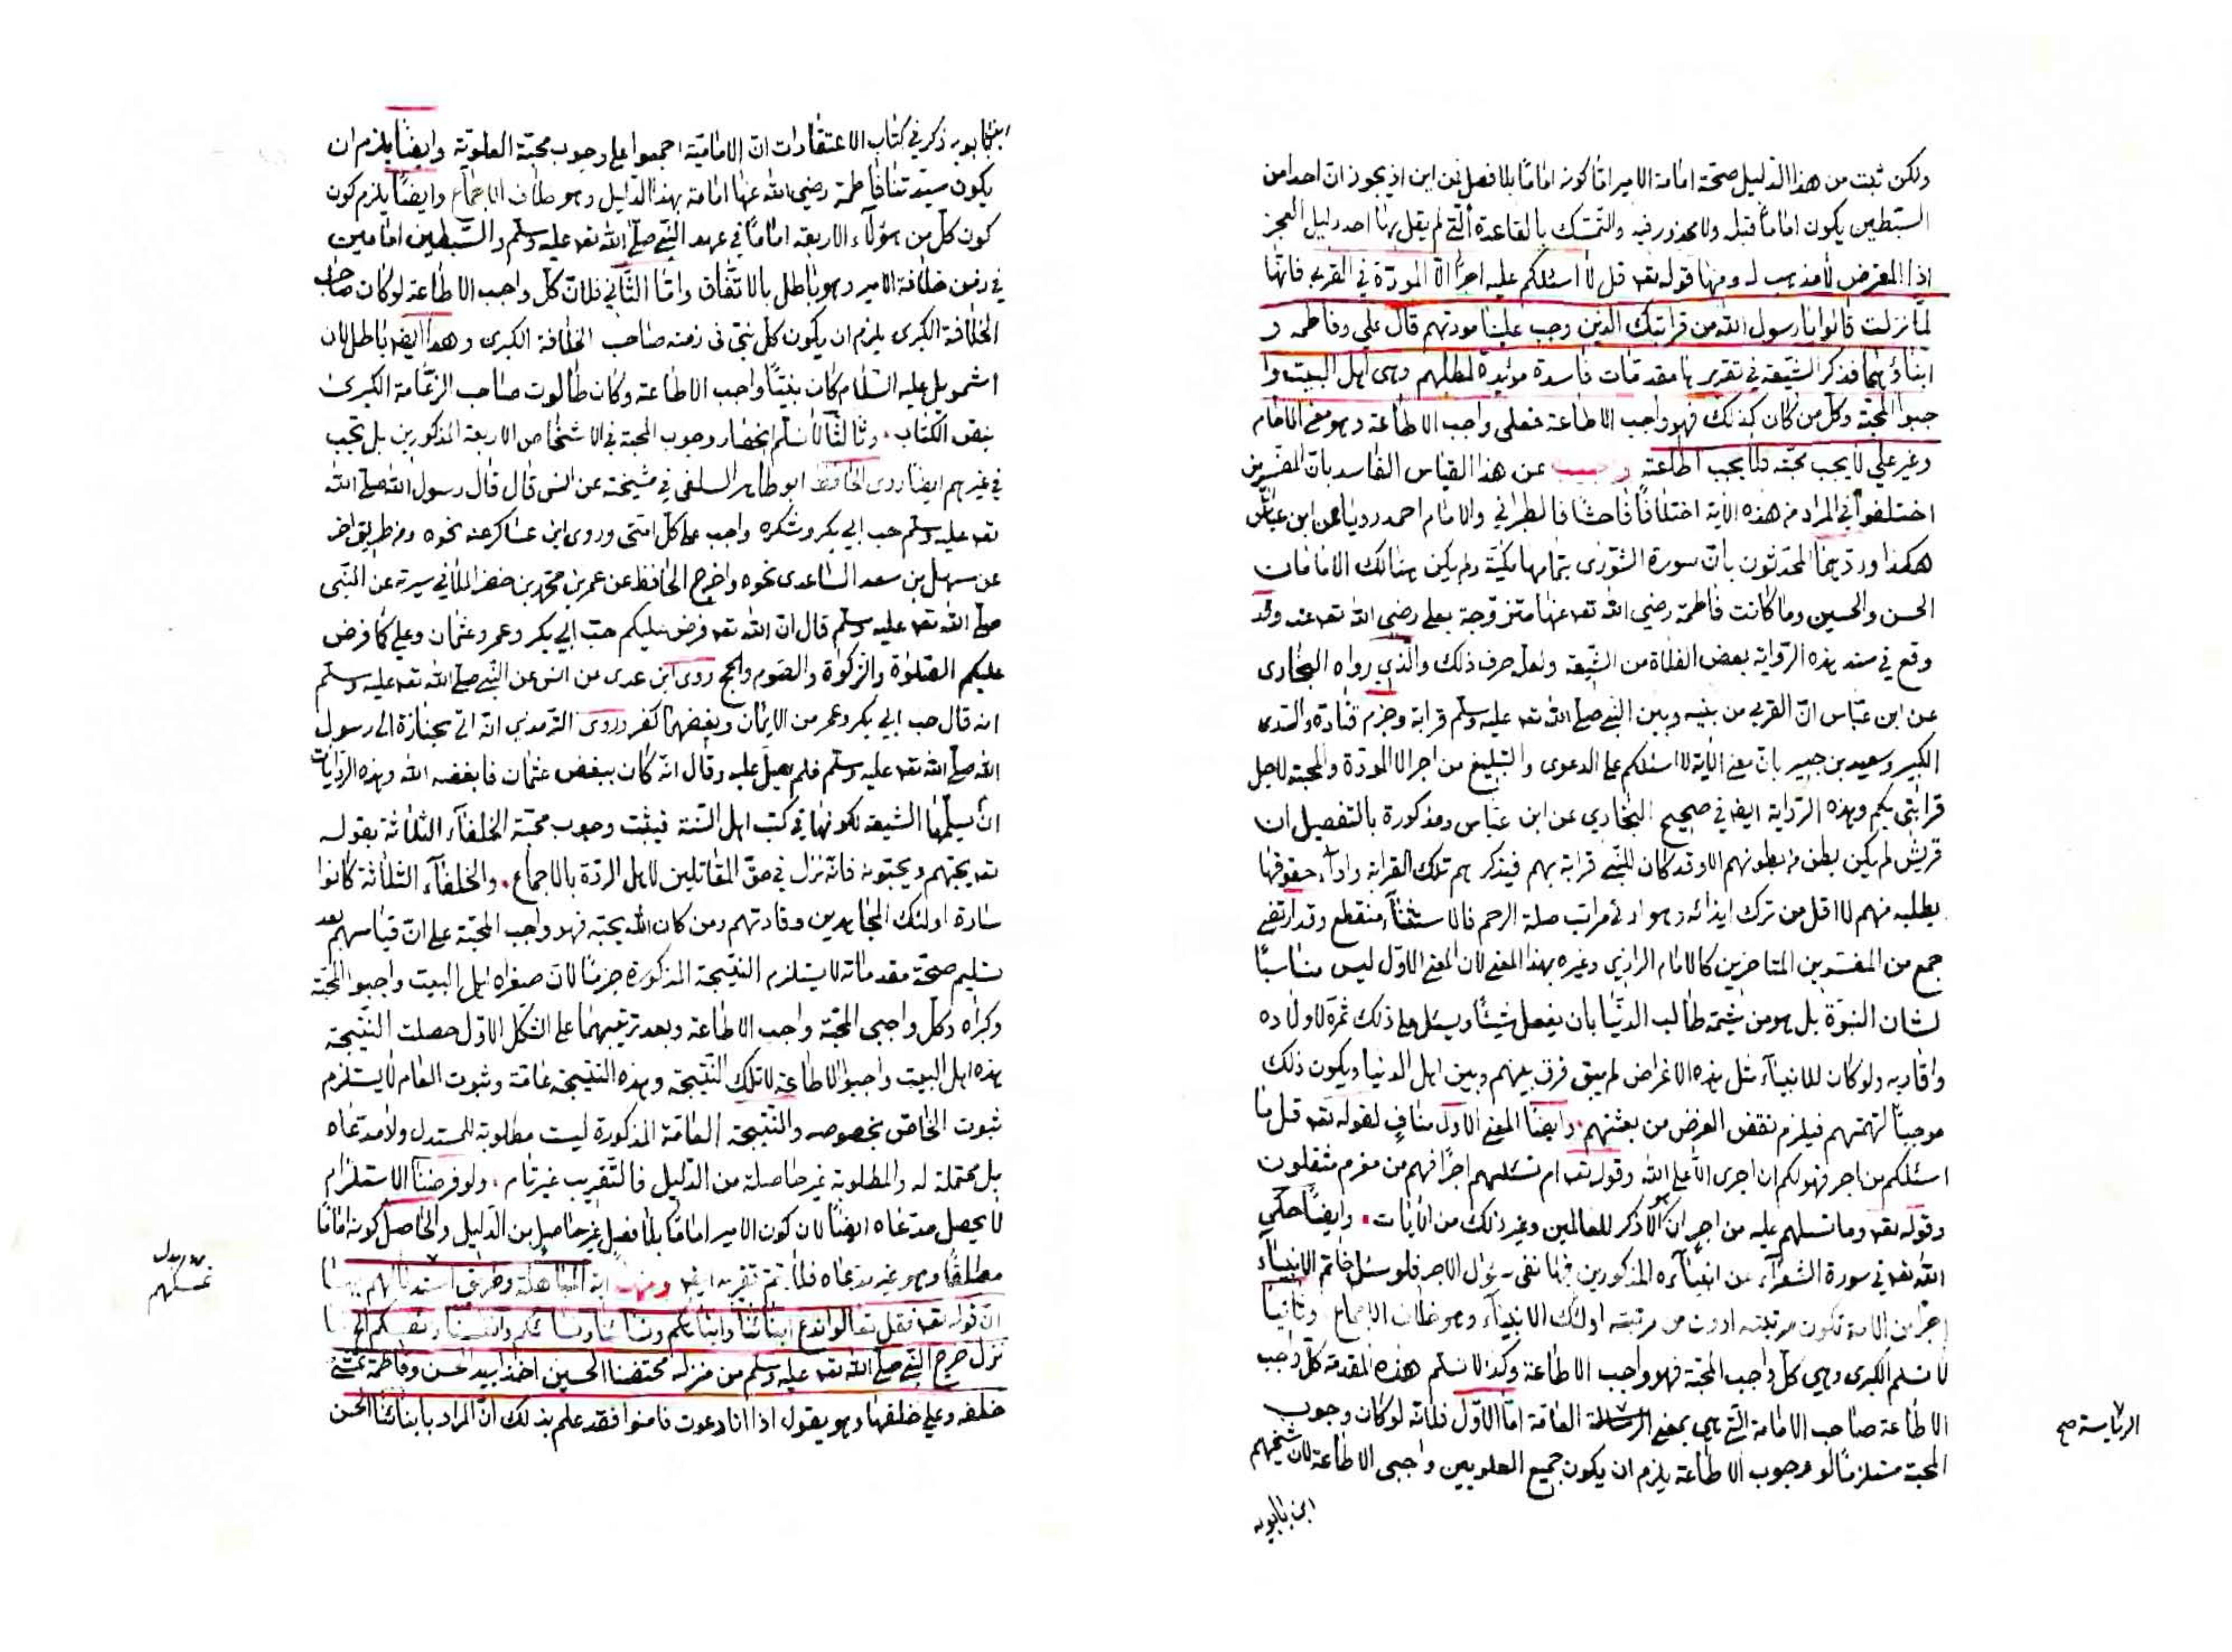 ولكن ثبت من هذا الدليل صحة امامة الامير اما كونه اماما بلا فصل فمن اين اذ يجوز ان احدا من
السبطين يكون اماما قبله ولا محذور فيه والتمسك بالقاعدة التي لم يقل بها احد دليل العجز
اذ المعترض لا مذهب له ومنها قوله تعه قل لا اسئلكم عليه اجرا الا المودة في القربى فانها
لما نزلت قالوا يا رسول الله من قرابتك الذين وجب علينا مودتهم قال علي وفاطمه و
ابناؤهما فذكر الشيعة في تقريرها مقدمات فاسدة مؤيدة لمطلبهم وهى اهل البيت وا
جبوا المحبة وكل من كان كذلك فهو واجب الاطاعة فعلى واجب الاطاعة وهو معنى الامام
وغير علي لا يجب محبته فلا يجب اطاعته واجيب عن هذا القياس الفاسد بان المفسرين
اختلفوا في المراد من هذه الآية اختلافا فاحشا فالطبراني والامام احمد رويا عن ابن عباس
هكذا ورد هما المحدثون بان سورة الشورى بتمامها مكية ولم يكن هنالك الامامان
الحسن والحسين وما كانت فاطمة رضي الله تعه عنها متزوجة بعلى رضي الله تعه عنه وقد
وقع في سند هذه الرواية بعض الغلاة من الشيعة ولعله حرف ذلك والذي رواه البخارى
عن ابن عباس ان القربى من بينه وبين النبي صلى الله تعه عليه وسلم قرابة وجزم قتادة والسدى
الكبير وسعيد بن جبير بان معنى الآية لا اسئلكم على الدعوى والتبليغ من اجر الا المودة والمحبة لاجل
قرابتى بكم وهذه الرواية ايضا في صحيح البخاري عن ابن عباس ومذكورة بالتفصيل ان
قريش لم يكن بطن من بطونهم الا وقد كان للنبي قرابة بهم فيذكرهم تلك القرابة واداء حقوقها
يطلبه منهم لا اقل من ترك ايذائه وهو ادنى مراتب صلة الرحم فالاستثناء منقطع وقد ارتضى
جمع من المفسرين المتاخرين كالامام الرازي وغيره بهذا المعنى لان المعنى الاول ليس مناسبا
لشان النبوة بل هو من شيمة طالب الدنيا بان يفعل شيئا ويسئل على ذلك ثمرة لاولاده
واقاربه ولو كان للانبياء مثل هذه الاغراض لم يبق فرق بينهم وبين اهل الدنيا ويكون ذلك
موجبا لتهمتهم فيلزم نقض الغرض من بعثتهم . وايضا المعنى الاول مناف لقوله تعه قل ما
اسئلكم من اجر فهو لكم ان اجرى الا على الله وقوله تعه ام تسئلهم اجرا فهم من مغرم مثقلون
وقوله تعه وما تسئلهم عليه من اجر ان هو الا ذكر للعالمين وغير ذلك من الآيات . وايضا حكي
الله تعه في سورة الشعراء عن انبيآءه المذكورين فيها نفى سؤال الاجر فلو سئل خاتم الانبيآء
اجرا من الامة تكون مرتبته ادون من مرتبته اولئك الانبيآء وهو خلاف الاجماع وثانيا
لا نسلم الكبرى وهي كل واجب المحبة فهو واجب الاطاعة وكذا لا نسلم هذه المقدمة كل واجب
الاطاعة صاحب الامامة التي هي بمعنى الرسالة العامة اما الاول فلانه لو كان وجوب
المحبة مستلزما لو وجوب الاطاعة يلزم ان يكون جميع العلويين واجبى الاطاعة لان شيخهم
ابن بابويه
الرياسة صح
ابن بابويه ذكر في كتاب الاعتقادات ان الامامية اجمعوا على وجوب محبة العلوية وايضا يلزم ان
يكون سيدتنا فاطمة رضي الله عنها امامة بهذا الدليل وهو خلاف الاجماع وايضا يلزم كون
كون كل من هؤلآء الاربعة اماما في عهد النبي صلى الله تعه عليه وسلم والسبطين امامين
في زمن خلافة الامير وهو باطل بالاتفاق واما الثاني فلان كل واجب الاطاعة لو كان صاحب
الخلافة الكبرى يلزم ان يكون كل نبى فى زمنه صاحب الخلافة الكبرى وهذا ايضا باطل لان
اشمويل عليه السلام كان نبيا واجب الاطاعة وكان طالوت صاحب الزعامة الكبرى
بنص الكتاب . وثالثا لا نسلم انحصار وجوب المحبة في الاشخاص الاربعة المذكورين بل تجب
في غيرهم ايضا روى الحافظ ابو طاهر السلفي في مشيخته عن انس قال قال رسول الله صلى الله
تعه عليه وسلم حب ابي بكر وشكره واجب على كل امتى وروى ابن عساكر عنه نحوه ومن طريق اخر
عن سهل بن سعد الساعدى نحوه واخرج الحافظ عن عمر بن محمد بن خضر الملاني سيرته عن النبى
صلى الله تعه عليه وسلم قال ان الله تعه فرض عليكم حب ابي بكر وعمر وعثمان وعلي كما فرض
عليكم الصلوة والزكوة والصوم والحج روى ابن عدى عن انس عن النبي صلى الله تعه عليه وسلم
انه قال حب ابي بكر وعمر من الايمان وبغضهما كفر وروى الترمذي انه اتى بجنازة الى رسول
الله صلى الله تعه عليه وسلم فلم يصل عليه وقال انه كان يبغض عثمان فابغضه الله وهذه الروايات
ان يسلمها الشيعة لكونها في كتب اهل السنة فيثبت وجوب محبة الخلفآء الثلاثة بقوله
تعه يحبهم ويحبونه فانه نزل في حق المقاتلين لاهل الردة بالاجماع . والخلفآء الثلاثة كانوا
سادة اولئك المجاهدين وقادتهم ومن كان الله يحبه فهو واجب المحبة على ان قياسهم بعد
تسليم صحة مقدماته لا يستلزم النتيجة المذكورة جزما لان صغراه اهل البيت واجبوا المحبة
وكبراه وكل واجبى المحبة واجب الاطاعة وبعد ترتيبهما على الشكل الاول حصلت النتيجة
هذه اهل البيت واجبوا الاطاعة لا تلك النتيجة وهذه النتيجة عامة وثبوت العام لا يستلزم
ثبوت الخاص بخصوصه والنتيجة العامة المذكورة ليست مطلوبة للمستدل ولا مدعاه
بل محتملة له والمطلوبة غير حاصلة من الدليل فالتقريب غير تام . ولو فرضنا الاستلزام
لا يحصل مدعاه ايضا لان كون الامير اماما بلا فصل غير حاصل من الدليل والحاصل كونه اماما
مطلقا وهو غير مدعاه فلا يتم تقريبه ايضا ومنها اية المباهلة وطريق استدلالهم بها
ان قوله تعه فقل تعالوا ندع ابنائنا وابنائكم ونسائنا ونسائكم وانفسنا وانفسكم
نزل خرج النبي صلى الله تعه عليه وسلم من منزله محتضنا الحسين اخذا بيد الحسن وفاطمة تمشي
خلفه وعلي خلفها وهو يقول اذا انا دعوت فامنوا فقد علم بذلك ان المراد بابنائنا الحسن
تمسكهم